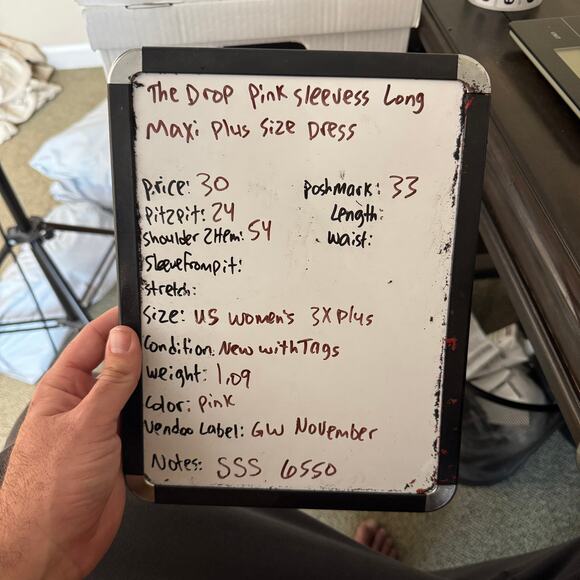 The Drop Pink sleevess Long
Maxi Plus Size Dress
Price: 30 Poshmark: 33
Pit2pit: 24 Length:
Shoulder 2Hem: 54 Waist:
Sleevefrompit:
Stretch:
Size: US Women's 3X Plus
Condition: New with Tags
Weight: 1.09
Color: Pink
Vendoo Label: GW November
Notes: SSS 6550